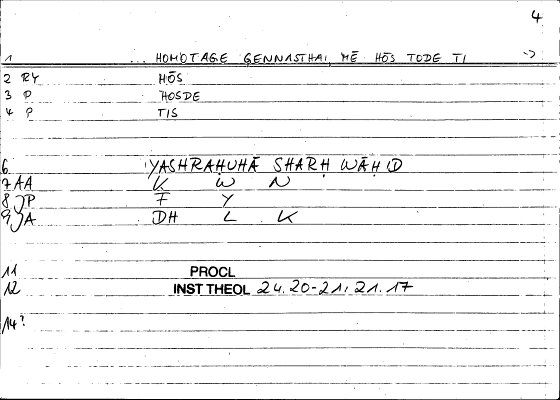 4
1 ... HOMOTAGE GENNASTHAI, MĒ HŌS TODE TI ->
2 RY HŌS
3 P HOSDE
4 P TIS
6 YASHRAḤUHĀ SHARḤ WĀḤID
7 AA K W N
8 P F Y
9 A DH L K
11 PROCL
12 INST THEOL 24.20-21; 21.17
14?